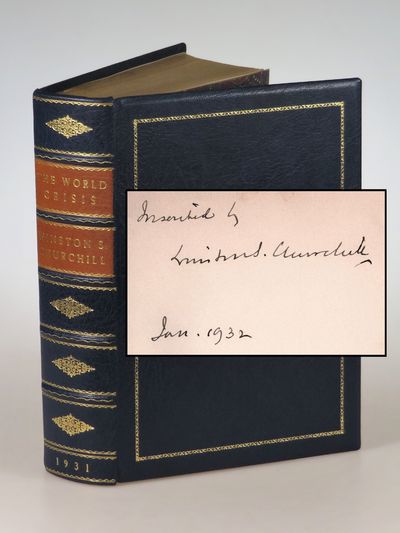 THE WORLD
CRISIS
WINSTON S.
CHURCHILL
1931
Inscribed by
Winston S. Churchill
Jan. 1932